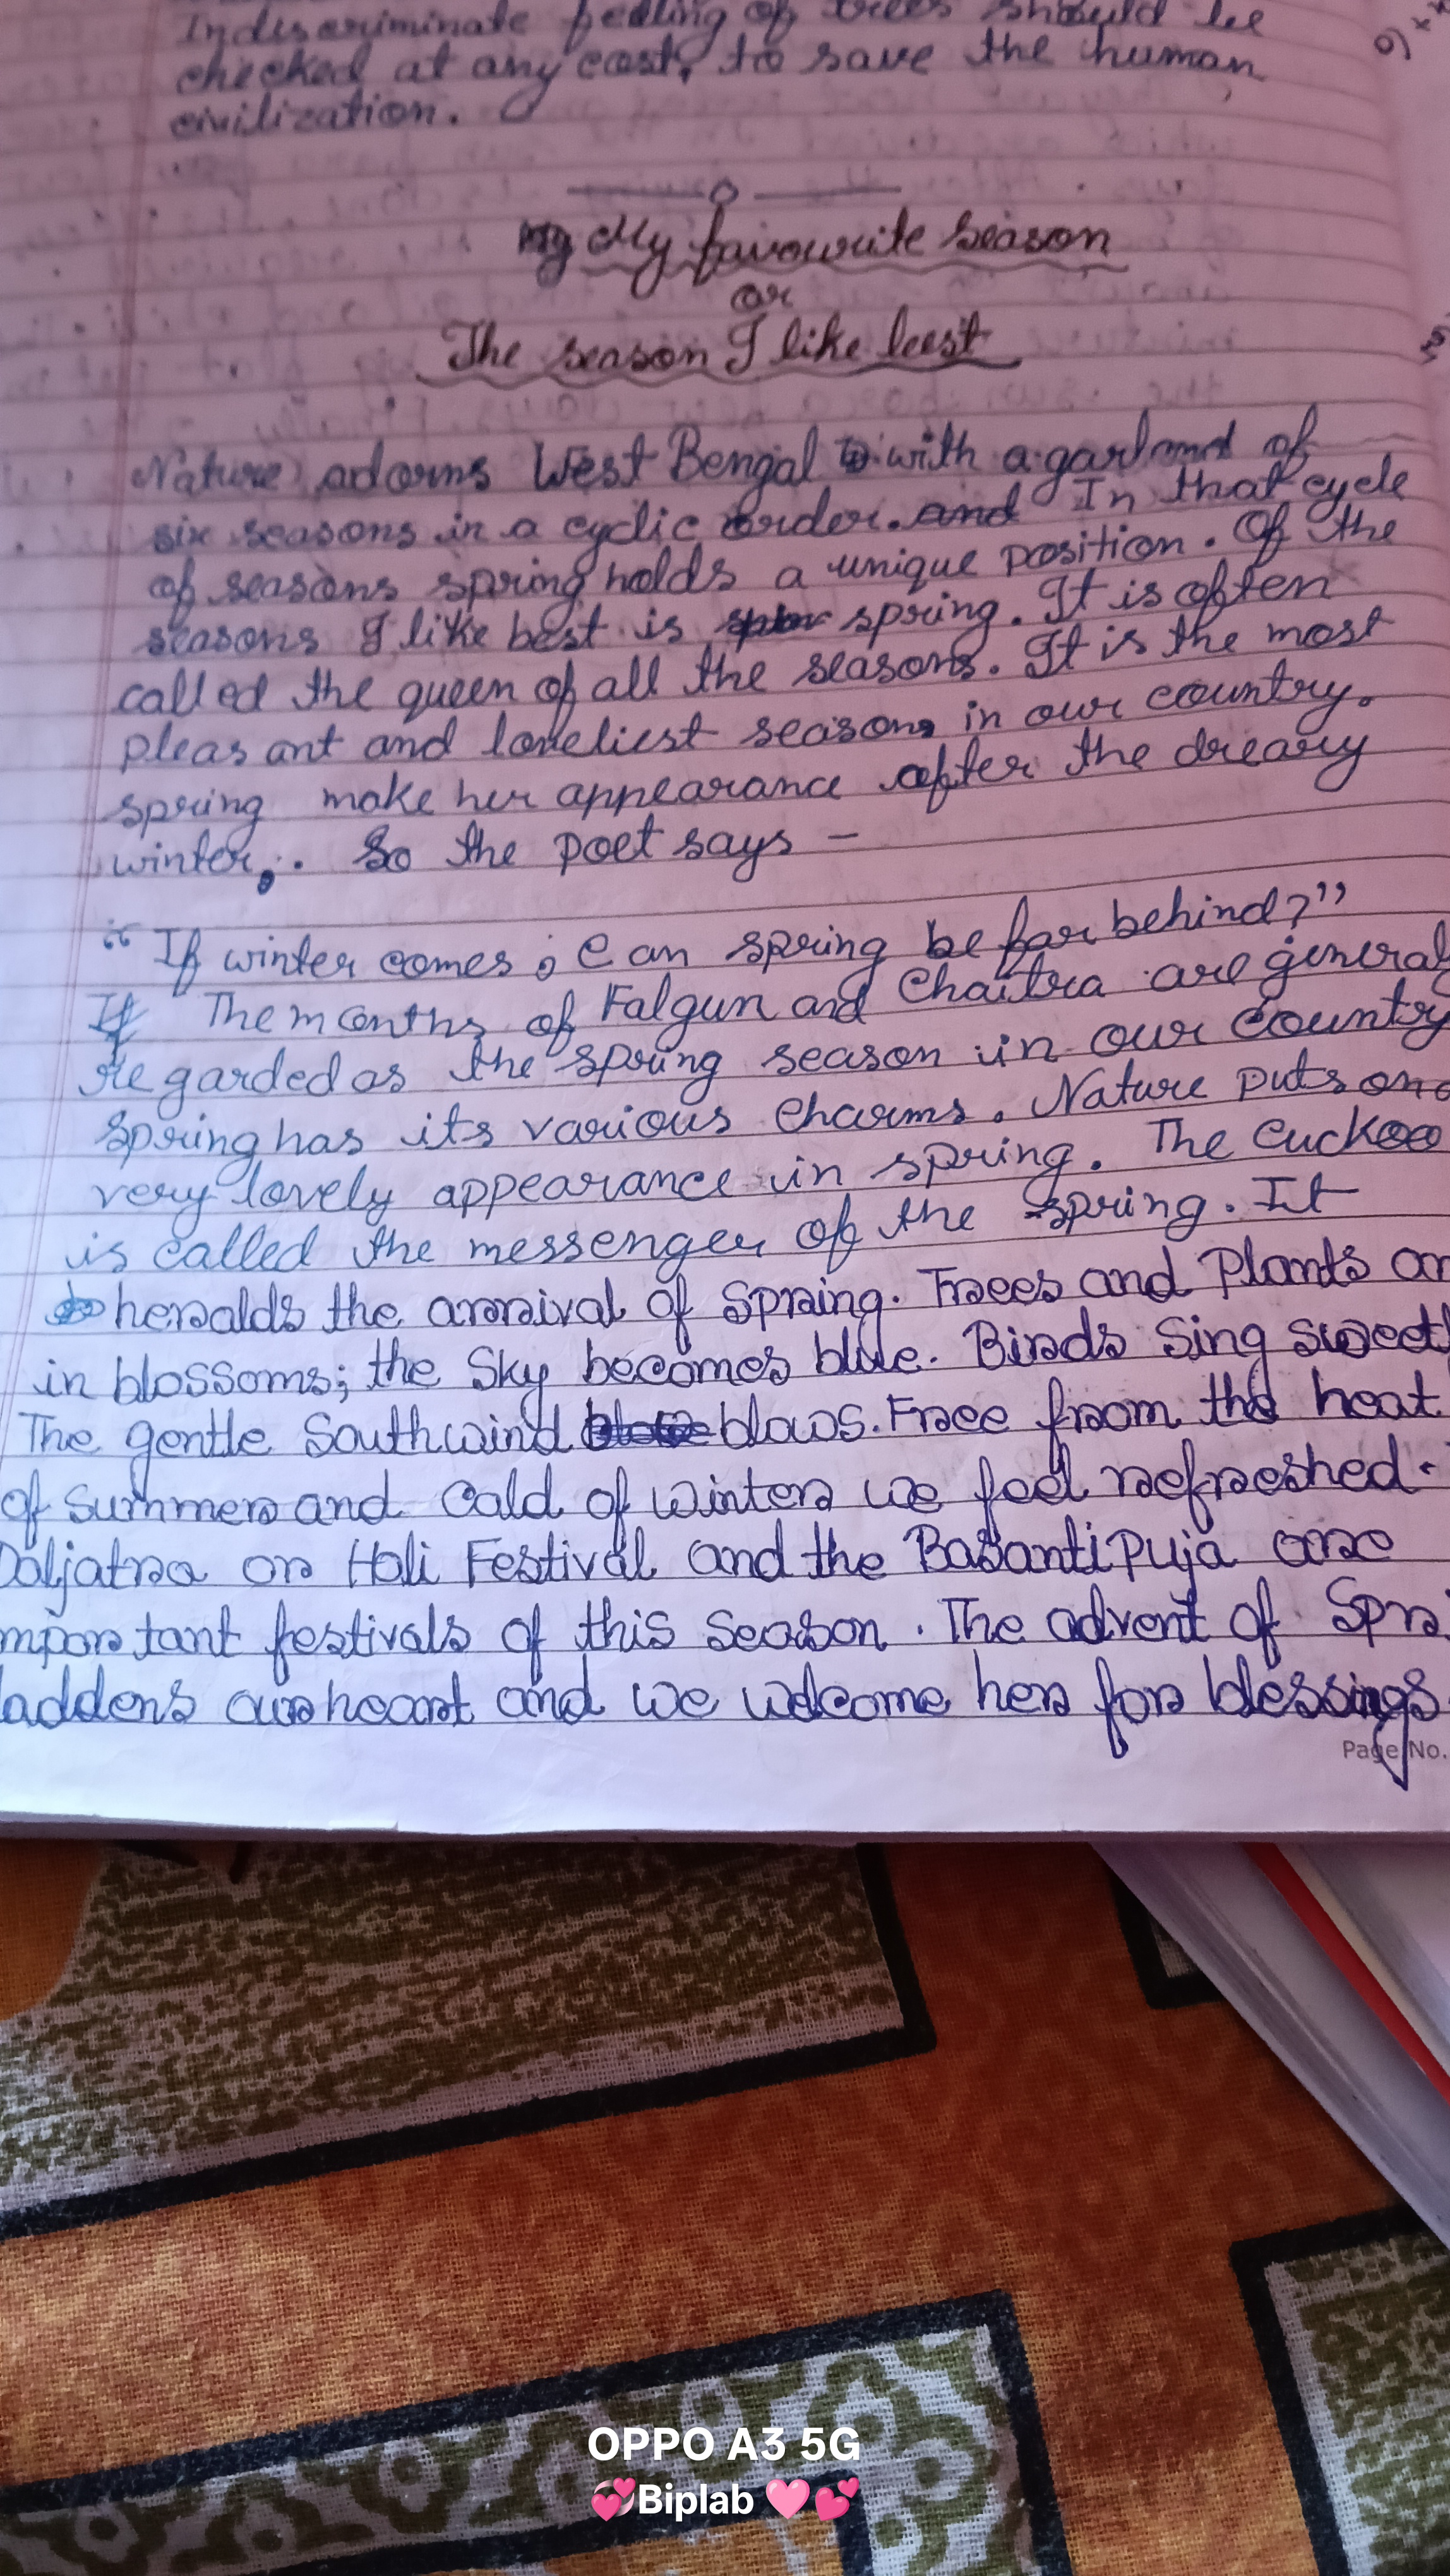 Indiscriminate felling of trees should be
checked at any cost, to save the human
civilization.
My My favourite season
or
The season I like best
Nature adorns West Bengal with a garland of
six seasons in a cyclic order. and In that cycle
of seasons spring holds a unique position. Of the
seasons I like best is spring. It is often
called the queen of all the seasons. It is the most
pleasant and loneliest season, in our country.
spring make her appearance after the dreary
winter,. So the poet says –
"If winter comes, Can spring be far behind?"
If The months of Falgun and Chaitra are general
Regarded as the spring season in our country
Spring has its various charms. Nature puts on a
very lovely appearance in spring. The cuckoo
is called the messenger of the spring. It
heralds the arrival of Spring. Trees and Plants ar
in blossoms; the Sky becomes blue. Birds Sing sweetl
The gentle Southwind blows. Free from the heat
of Summer and Cold of winter we feel refreshed.
Doljatra or Holi Festival and the Basanti Puja are
mportant festivals of this Season. The advent of Spri
laddens our heart and we welcome her for blessings
Page No.
OPPO A3 5G
💞Biplab 🩷💕